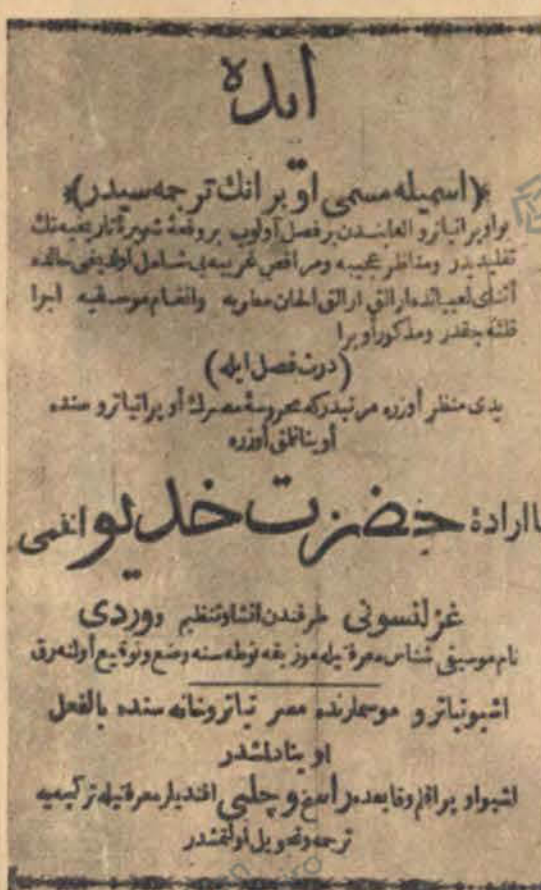 ایده
﴿اسمیله مسمی اوپرانك ترجمه سیدر﴾
بواوپرا تیاترو العابندن برفصل اولوب بروقعهٔ شهیرهٔ تاریخیه نك
تقلیدیدر ومناظر عجیبه ومراقص غریبه یی شامل اولدیغی حالده
اثنای لعبیاتده ارالق ارالق الحان مطربه وانغام موسقیه اجرا
قلنه جقدر ومذكور أوپرا
(درت فصل ایله)
یدی منظر أوزره مرتبدركه محروسهٔ مصرك أوپرا تیاتروسنده
أوینانلمق أوزره
بااراده حضرت خدیو افخمی
غزلنسونی طرفندن انشا وتنظیم ووردی
نام موسیقی شناس معرفتیله موزیقه نوطه سنه وضع وتوقیع أولنه رق
اشبو تیاترو موسملرنده مصر تیاتروخانه سنده بالفعل
اوینادلمشدر
اشبو اوپرا قلم وقایعده راسخ وچلبی افندیلر معرفتیله تركجه یه
ترجمه وتحویل أولنمشدر